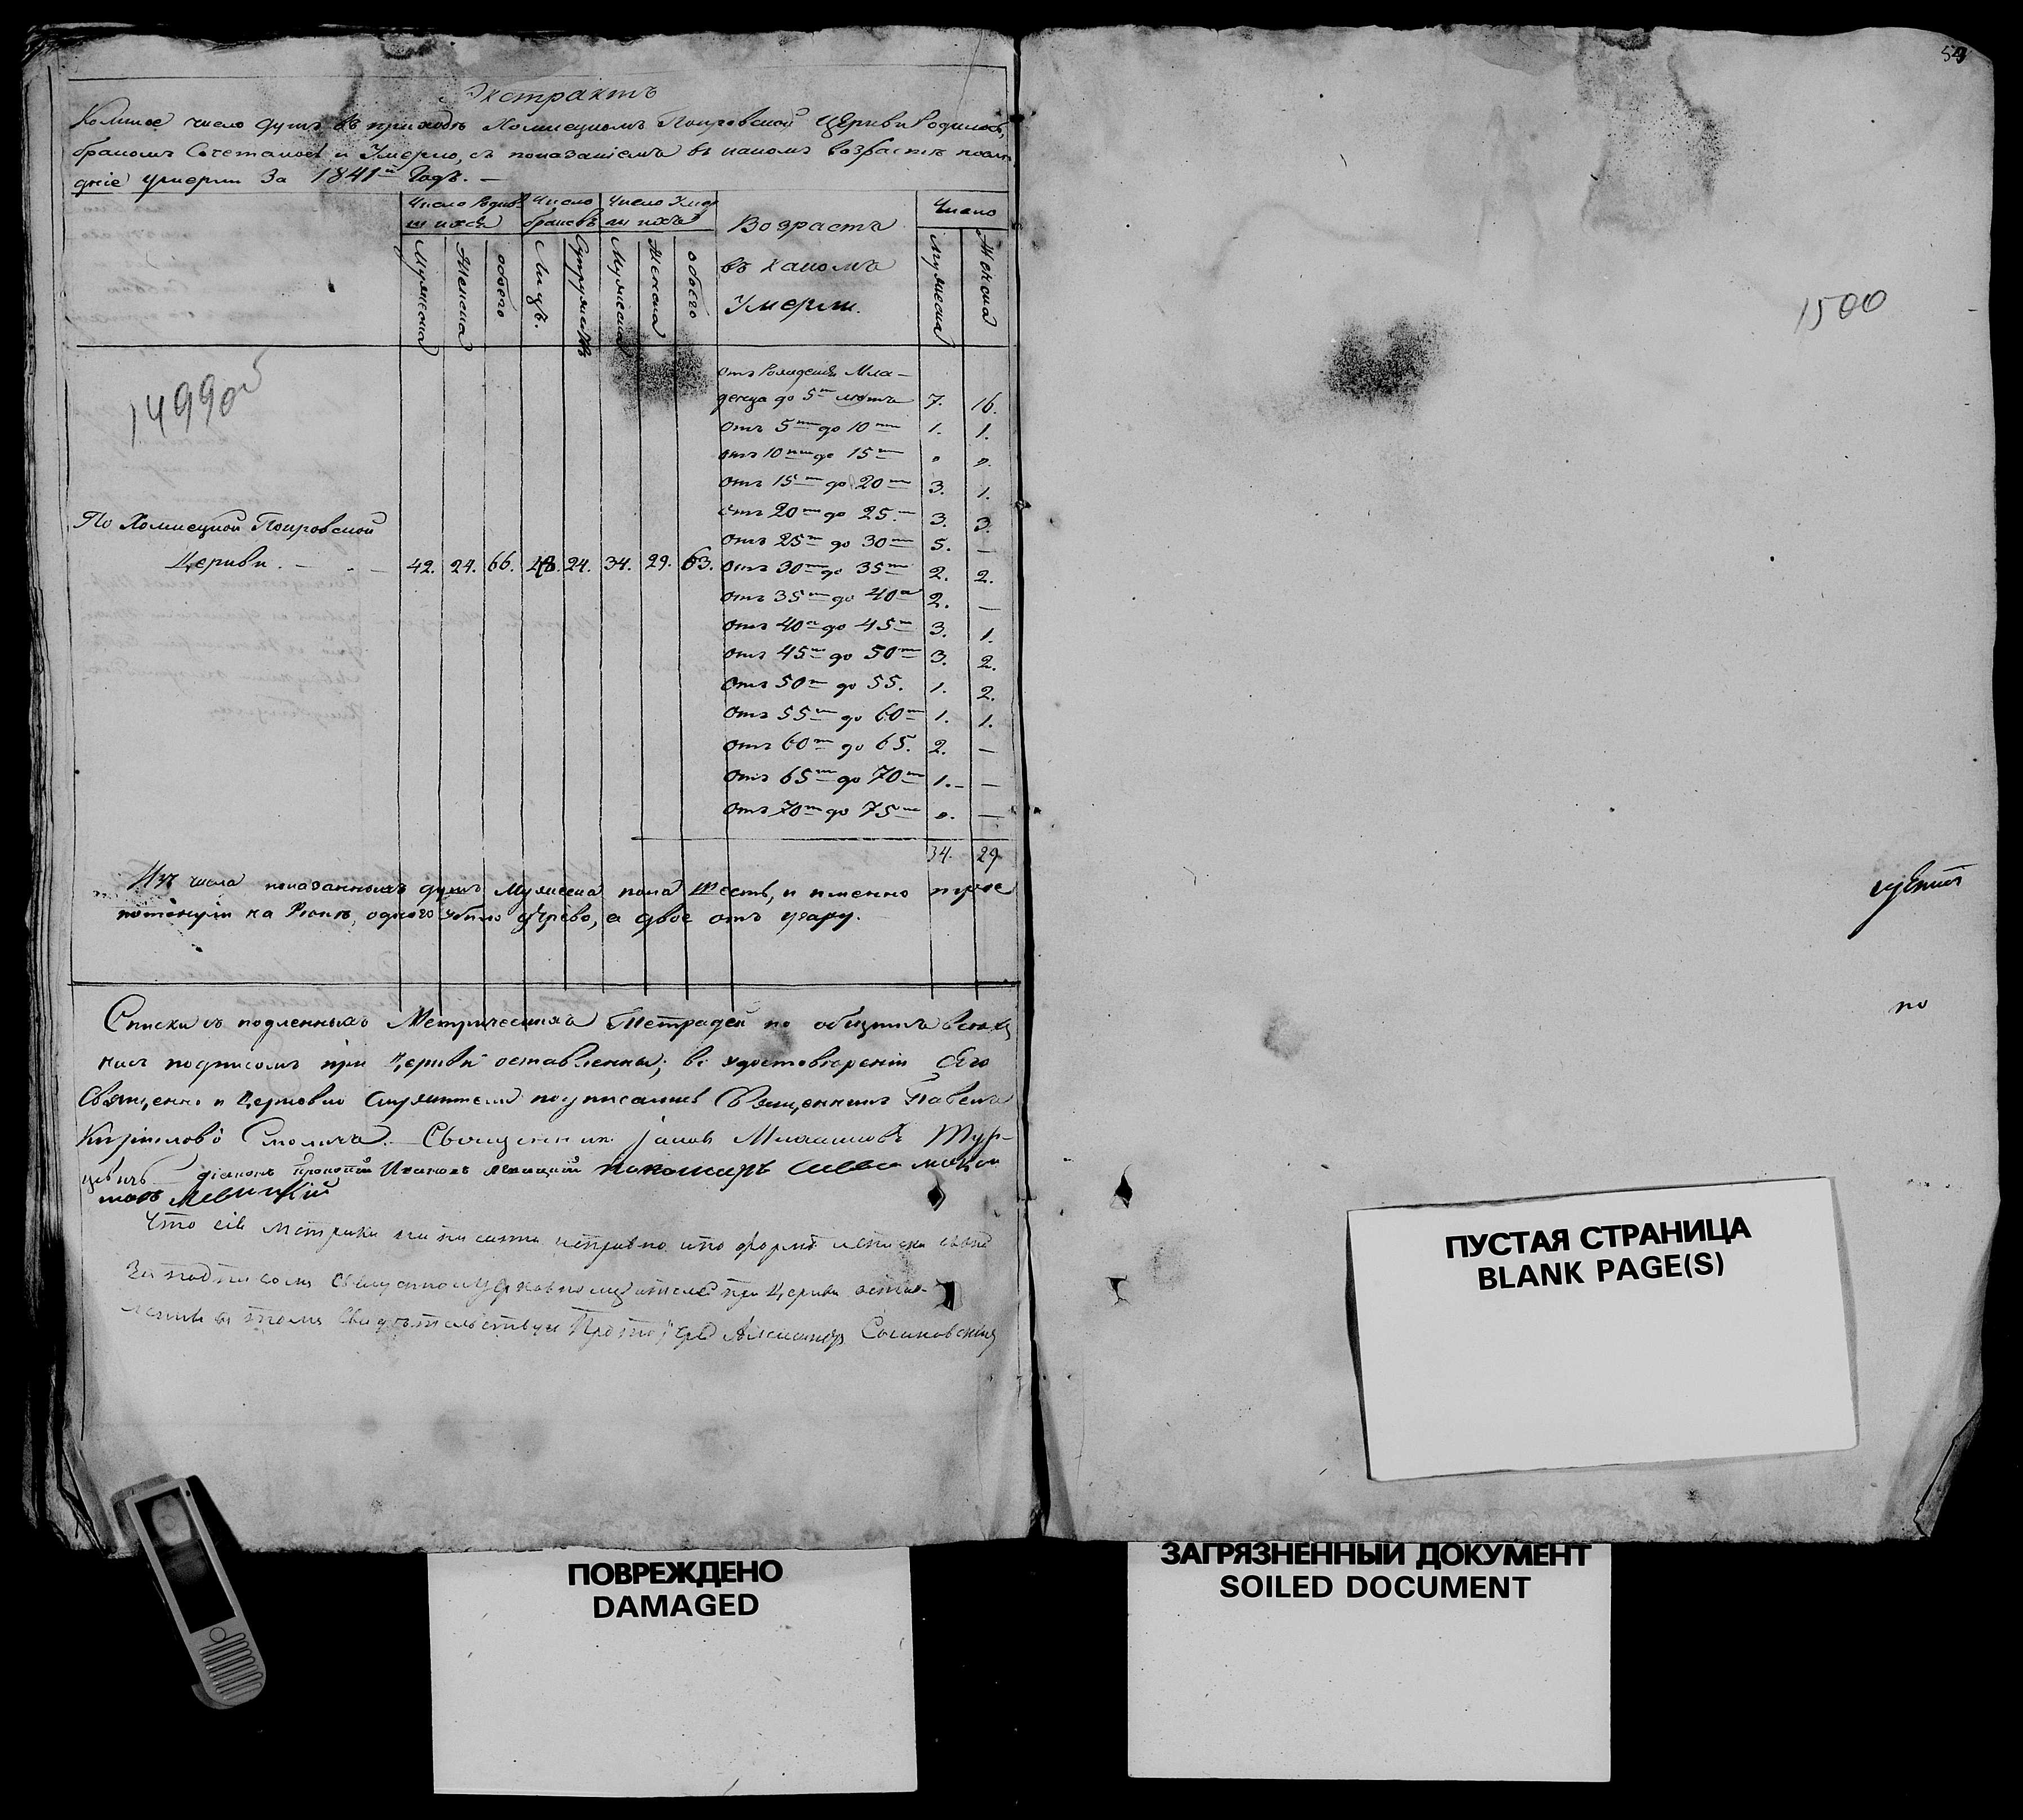 Экстрактъ
Коликое число душъ въ приходѣ Хомнецкомъ Покровской Церкви Родилось,
бракомъ Сочеталось и Умерло, съ показаніемъ въ какомъ возрастѣ послѣ
дніе умерли За 1841й Годъ. —
Число Родив
шихся
Число
браковъ
Число Умер
шихъ
Возрастъ
въ каком
Умерли.
Число
Мужеска
Женска
обоего
Лицъ.
Супружествъ
Мужеска
Женска
обоего
Мужеска
Женска
1499об
По Хомнецкой Покровской
Церкви. — —
42. 24. 66. 48. 24. 34. 29. 63.
отъ Рожденія Мла-
денца до 5ти лѣтъ 7. 16.
отъ 5ти до 10ти 1. 1.
отъ 10ти до 15ти „ „.
отъ 15ти до 20ти 3. 1.
отъ 20ти до 25. 3. 3.
отъ 25ти до 30ти 5. —
отъ 30ти до 35ти 2. 2.
отъ 35ти до 40а 2. —
отъ 40а до 45ти 3. 1.
отъ 45ти до 50ти 3. 2.
отъ 50ти до 55. 1. 2.
отъ 55ти до 60ти 1. 1.
отъ 60ти до 65. 2. —
отъ 65ти до 70ти 1. —
отъ 70ти до 75ти „. —
34. 29
Изъ числа показанныхъ душъ Мужеска пола Шесть, и именно трое
потонули на Рѣкѣ, одного убило дерево, а двое отъ угару.
Списки съ подленныхъ Метрическихъ Тетрадей по общимъ
подписомъ при Церкви оставленны; въ удостовѣреніи Его
Священно и Церковно Служители подписались Священникъ Павелъ
Кириловъ Смоличъ. — Священник Іаковъ
діаконъ Прокопій Ивановъ пономарь
Левицкій
Что сіи метрики написанны исправно и по формѣ
За подписомъ Священноцерковнослужителей при Церкви остав-
въ томъ Свидѣтельствую Протоіерей Александръ Сосиновский
54
1500
по
ПУСТАЯ СТРАНИЦА
BLANK PAGE(S)
ПОВРЕЖДЕНО
DAMAGED
ЗАГРЯЗНЕННЫЙ ДОКУМЕНТ
SOILED DOCUMENT